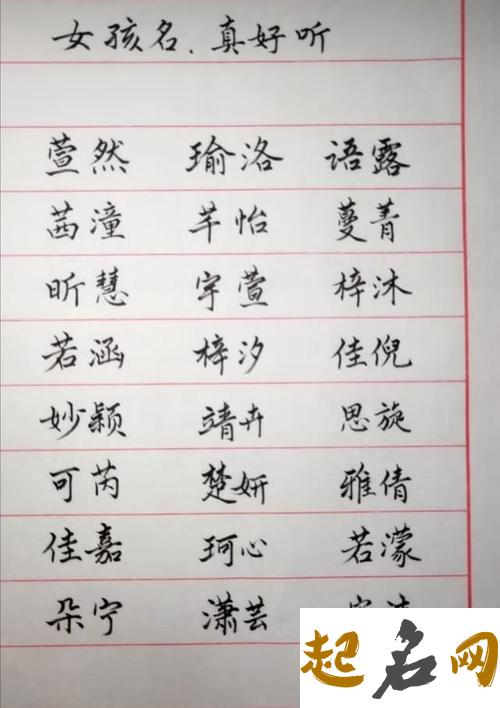 女孩名、真好听
萱然 瑜洛 语露
茜潼 芊怡 蔓菁
昕慧 宇萱 梓沐
若涵 梓汐 佳倪
妙颖 靖卉 思旋
可芮 楚妍 雅倩
佳嘉 珂心 若濛
朵宁 潇芸
起名网